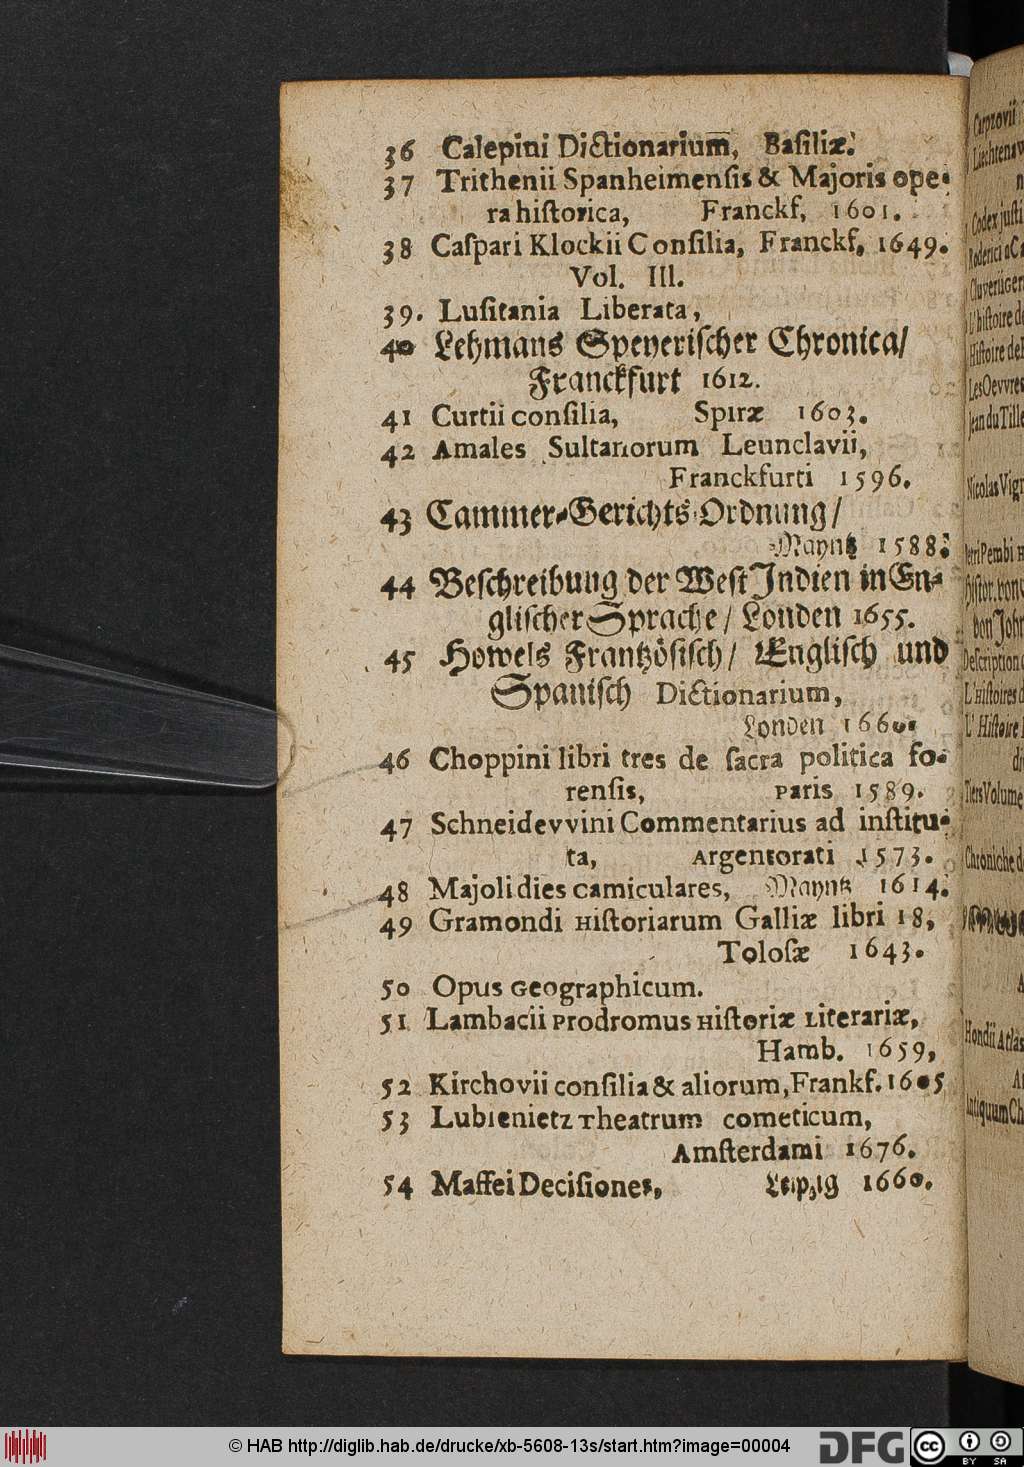 36 Calepini Dictionarium, Basiliæ.
37 Trithenii Spanheimensis & Majoris ope-
ra historica, Franckf, 1601.
38 Caspari Klockii Consilia, Franckf, 1649.
Vol. III.
39. Lusitania Liberata,
40 Lehmans Speyerischer Chronica/
Franckfurt 1612.
41 Curtii consilia, Spiræ 1603.
42 Amales Sultanorum Leunclavii,
Franckfurti 1596.
43 Cammer-Gerichts-Ordnung/
Mayntz 1588.
44 Beschreibung der West Indien in En-
glischer Sprache/ Londen 1655.
45 Howels Frantzösisch/ Englisch und
Spanisch Dictionarium,
Londen 1660.
46 Choppini libri tres de sacra politica fo-
rensis, Paris 1589.
47 Schneidevvini Commentarius ad institu-
ta, Argentorati 1573.
48 Majoli dies camiculares, Mayntz 1614.
49 Gramondi Historiarum Galliæ libri 18,
Tolosæ 1643.
50 Opus Geographicum.
51 Lambacii Prodromus Historiæ Literariæ,
Hamb. 1659,
52 Kirchovii consilia & aliorum, Frankf. 1605
53 Lubienietz Theatrum cometicum,
Amsterdami 1676.
54 Maffei Decisiones, Leipzig 1660.
Carpzovii
Codex justi
L'histoire de
Histoire de
Les Oevvres
Jean du Tille
Nicolas Vign
Petri Pembi H
Histor. von
von Joh
Description
L'Histoires d
L'Histoire
Tiers Volume
Chroniche d
Hondii Atlas
© HAB http://diglib.hab.de/drucke/xb-5608-13s/start.htm?image=00004
DFG
cc BY SA